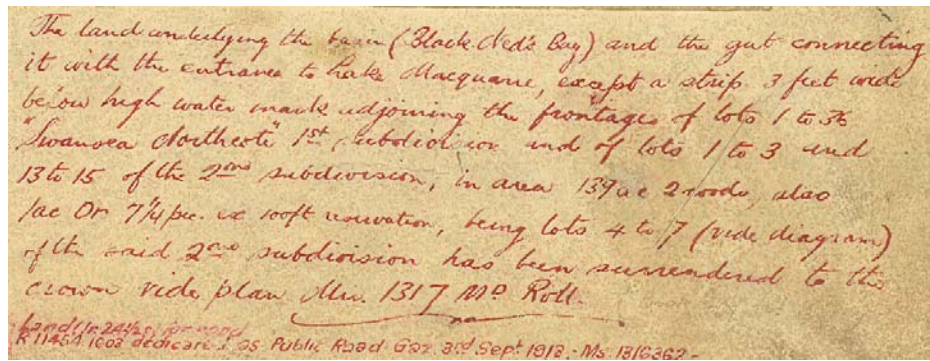 The land underlying the basin (Black Ned's Bay) and the gut connecting
it with the entrance to Lake Macquarie, except a strip 3 feet wide
below high water mark adjoining the frontages of lots 1 to 36
"Swansea Northcote" 1st subdivision and of lots 1 to 3 and
13 to 15 of the 2nd subdivision, in area 139ac 2 roods, also
1ac 0r 7¼ per. ex 100ft reservation, being lots 4 to 7 (vide diagram)
of the said 2nd subdivision has been surrendered to the
crown vide plan Mis. 1317 Md Roll.
for road
R 11454.1603 dedicated as Public Road Gaz. 3rd Sept. 1913.- Ms. 13/6362 -